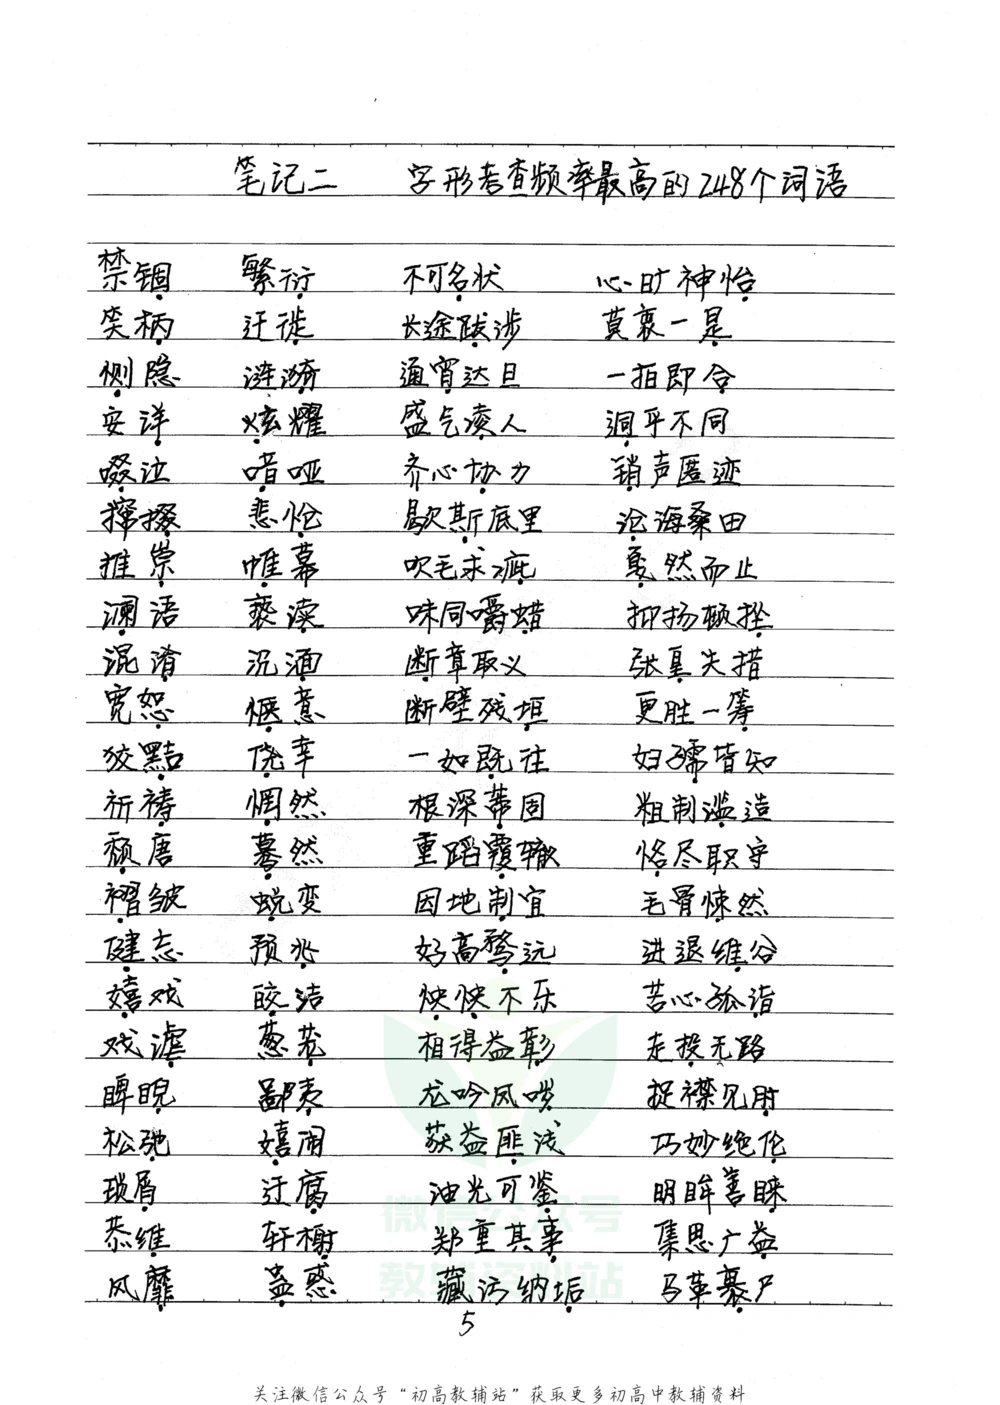 笔记二 字形考查频率最高的248个词语
禁锢 繁衍 不可名状 心旷神怡
笑柄 迁徙 长途跋涉 莫衷一是
恻隐 涟漪 通宵达旦 一拍即合
安详 炫耀 盛气凌人 迥乎不同
啜泣 喑哑 齐心协力 销声匿迹
撺掇 悲怆 歇斯底里 沧海桑田
推崇 帷幕 吹毛求疵 戛然而止
澜语 亵渎 味同嚼蜡 抑扬顿挫
混淆 沉湎 断章取义 张皇失措
宽恕 惬意 断壁残垣 更胜一筹
狡黠 侥幸 一如既往 妇孺皆知
祈祷 惘然 根深蒂固 粗制滥造
颓唐 蓦然 重蹈覆辙 恪尽职守
褶皱 蜕变 因地制宜 毛骨悚然
健忘 预兆 好高骛远 进退维谷
嬉戏 皎洁 怏怏不乐 苦心孤诣
戏谑 葱茏 相得益彰 走投无路
睥睨 鄙夷 龙吟凤哕 捉襟见肘
松弛 嬉闹 获益匪浅 巧妙绝伦
琐屑 迂腐 油光可鉴 明眸善睐
恭维 轩榭 郑重其事 集思广益
风靡 蛊惑 藏污纳垢 马革裹尸
5
微信公众号
教辅资料站
关注微信公众号“初高教辅站”获取更多初高中教辅资料